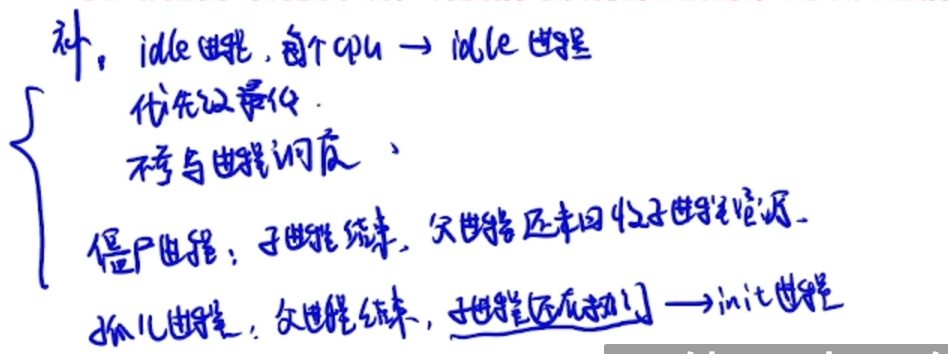 补, idle进程, 每个cpu → idle进程
优先级最低.
不参与进程调度、
僵尸进程: 子进程结束, 父进程还未回收子进程资源.
孤儿进程, 父进程结束, 子进程还在执行 → init进程